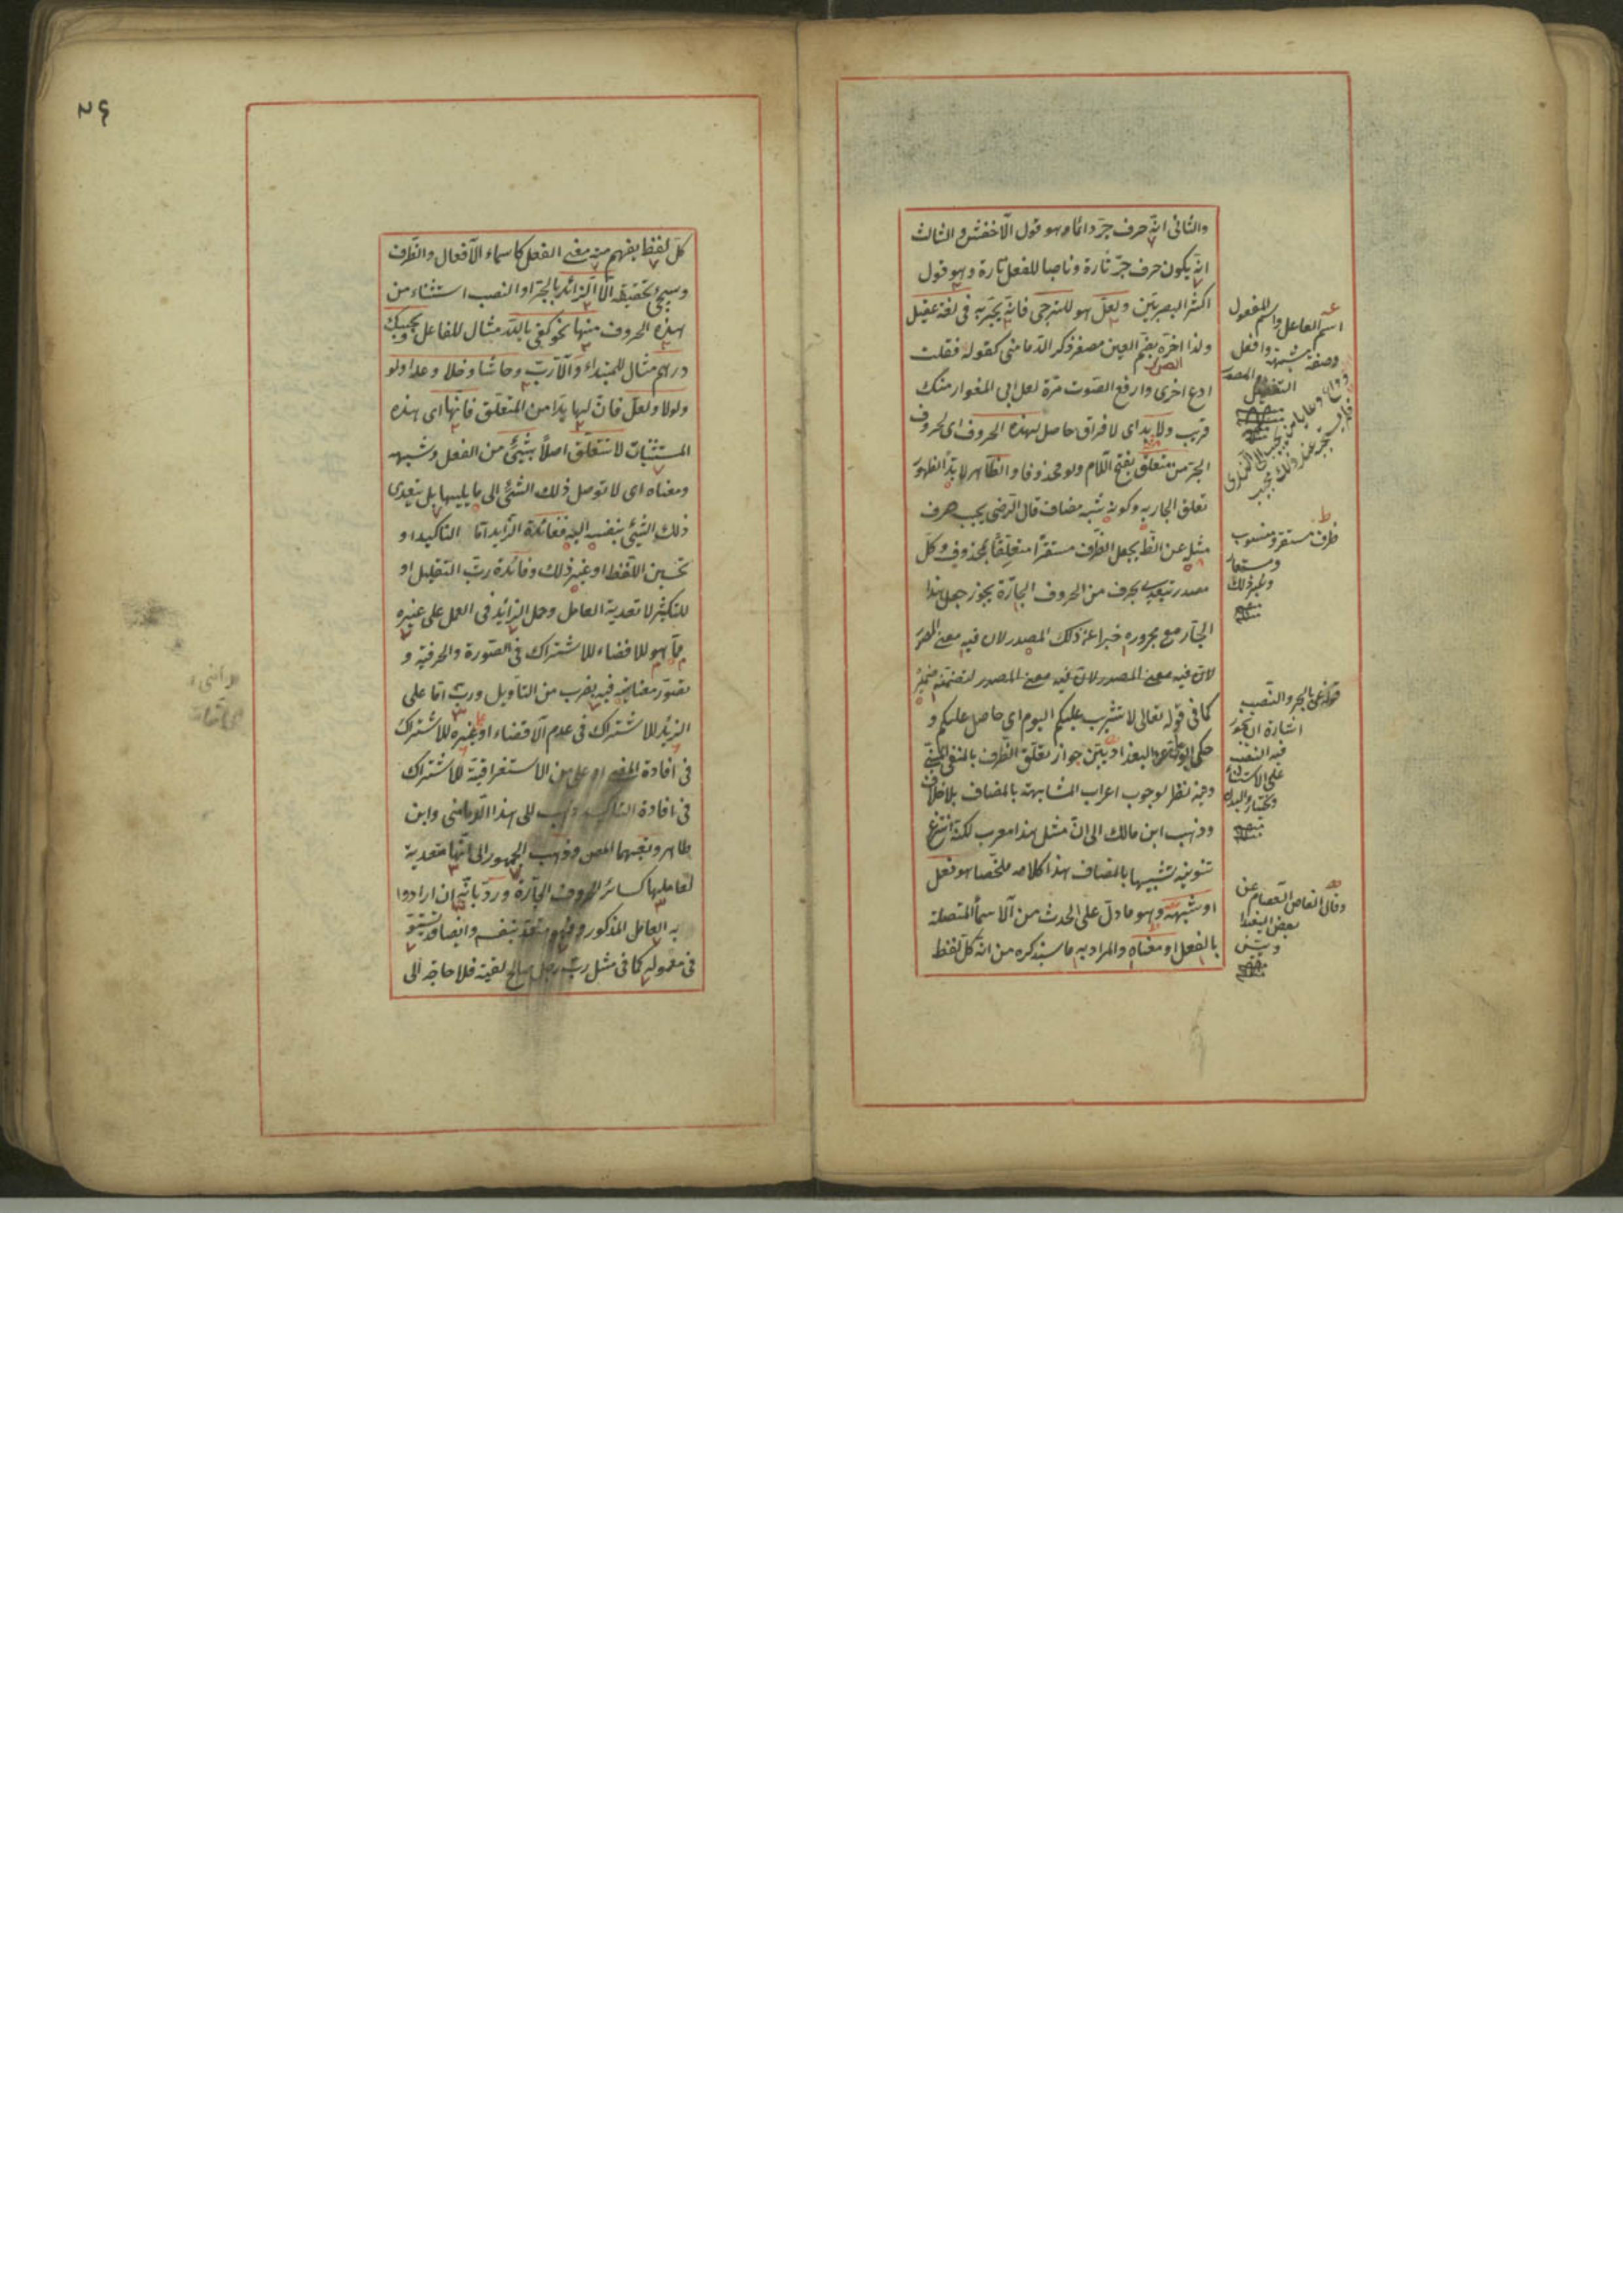 والثانى انه حرف جرّ دائما وهو قول الأخفش والثالث
انه يكون حرف جرّ تارة وناصبا للفعل تارة وهو قول
اكثر البصريين ولعلّ هو للترجى فانه يجرّ به فى لغة عقيل
ولذا اخره بضم العين مصغر ذكر الدمامينى كقوله فقلت
ادع اخرى وارفع الصّوت مرّة لعل ابى المغوار منك
قريب ولا بد اى لا فراق حاصل لهذه الحروف اى لحروف
الجر من متعلّق بفتح اللّام ولو محذوفا والظاهر لا بدّا لظهور
تعلق الجار به وكونه شبه مضاف قال الرضى يجب صرف
مثله عن الظ بجعل الظّرف مستقرّا متعلّقا بمحذوف وكل
مصدر يتعدى بحرف من الحروف الجارّة يجوز جعل هذا
الجار مع مجروره خبرا عن ذلك المصدر لان فيه معنى
لان فيه معنى المصدر لان فيه معنى المصدر لتضمنه ضميره
كما فى قوله تعالى لا تثريب عليكم اليوم اى حاصل عليكم و
حكى عن البغداديّين جواز تعلّق الظّرف بالمنفى
وفيه نظر لوجوب اعراب المشابهة بالمضاف بلا خلاف
وذهب ابن مالك الى انّ مثل هذا معرب لكنه انتزع
تنوينه تشبيها بالمضاف هذا كلامه ملخّصا هو فعل
او شبهه وهو ما دلّ على الحدث من الأسماء المتصلة
بالفعل او معناه والمراد به ما سيذكره من انه كل لفظ
اسم الفاعل واسم المفعول
وصفة مشبهة وافعل
التفضيل والمصدر
ظرف مستقر ومنسوب
ومستعار
وغير ذلك
قوله اعنى بالجر والنّصب
اشارة ان يجوز
فيه النصب
على الاستثناء
وقال الفاضل العصام عن
بعض البغدا
ديّين
٢٤
كلّ لفظ يفهم منه معنى الفعل كاسماء الأفعال والظّرف
وسيجئ تحقيقه الّا الزائد بالجرّ او النصب استثناء من
هذه الحروف منها نحو كفى باللّه مثال للفاعل وبحسبك
درهم مثال للمبتداء والّا ربّ وحاشا وخلا وعدا ولو
ولولا ولعلّ فانّ لها بدّا من المتعلّق فانها اى هذه
المستثنيات لا تتعلّق اصلاً بشئ من الفعل وشبهه
ومعناه اى لا توصل ذلك الشئ الى ما يليها بل يتعدى
ذلك الشئ بنفسه اليه ففائدة الزايد اما التاكيد او
تحسين اللفظ او غير ذلك وفائدة ربّ التقليل او
للتكثير لا تعدية العامل وحمل الزائد فى العمل على غيره
ممّا هو للافضاء للاشتراك فى الصّورة والحرفيّة و
تصوّر معناه فيه بضرب من التاويل وربّ اما على
الزايد للاشتراك فى عدم الاقتضاء او على غيره للاشتراك
فى افادة المعنى او على من الاستغراقيّة للاشتراك
فى افادة التاكيد وذهب الى هذا الرّمانى وابن
طاهر وتبعهما المص وذهب الجمهور الى انّها متعدية
لعاملها كسائر الحروف الجارّة وردّ بانّه ان ارادوا
به العامل المذكور فهو متعد بنفسه وايضا قد يستوفى
فى معموله كما فى مثل ربّ رجل صالح لقيته فلا حاجة الى